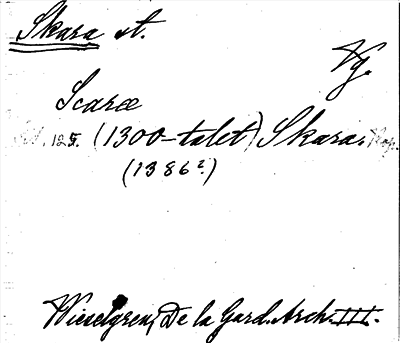 Skara st.
Vg.
Scaræ
125. (1300-talet) Skara.
(1386?)
Wieselgren, De la Gard. Arch. III.